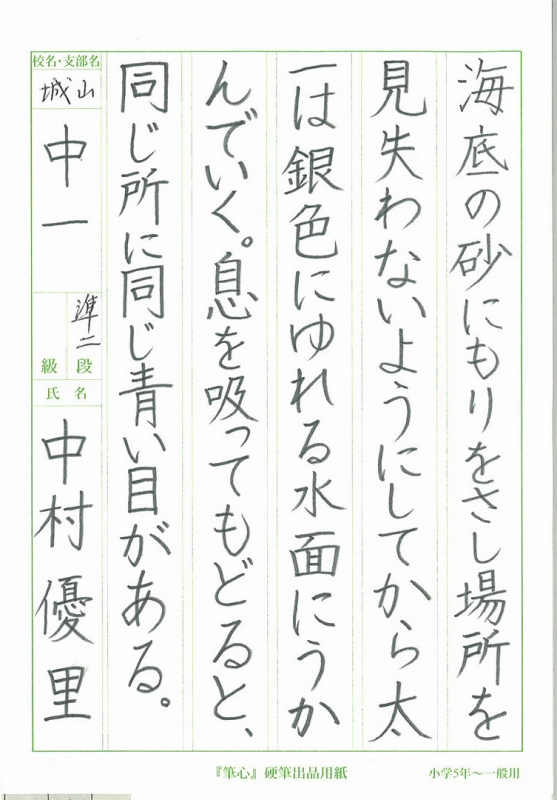 海底の砂にもりをさし場所を
見失わないようにしてから太
一は銀色にゆれる水面にうか
んでいく。息を吸ってもどると、
同じ所に同じ青い目がある。
校名・支部名
城山
中一
準二
段
級
氏名
中村優里
『筆心』硬筆出品用紙
小学5年～一般用